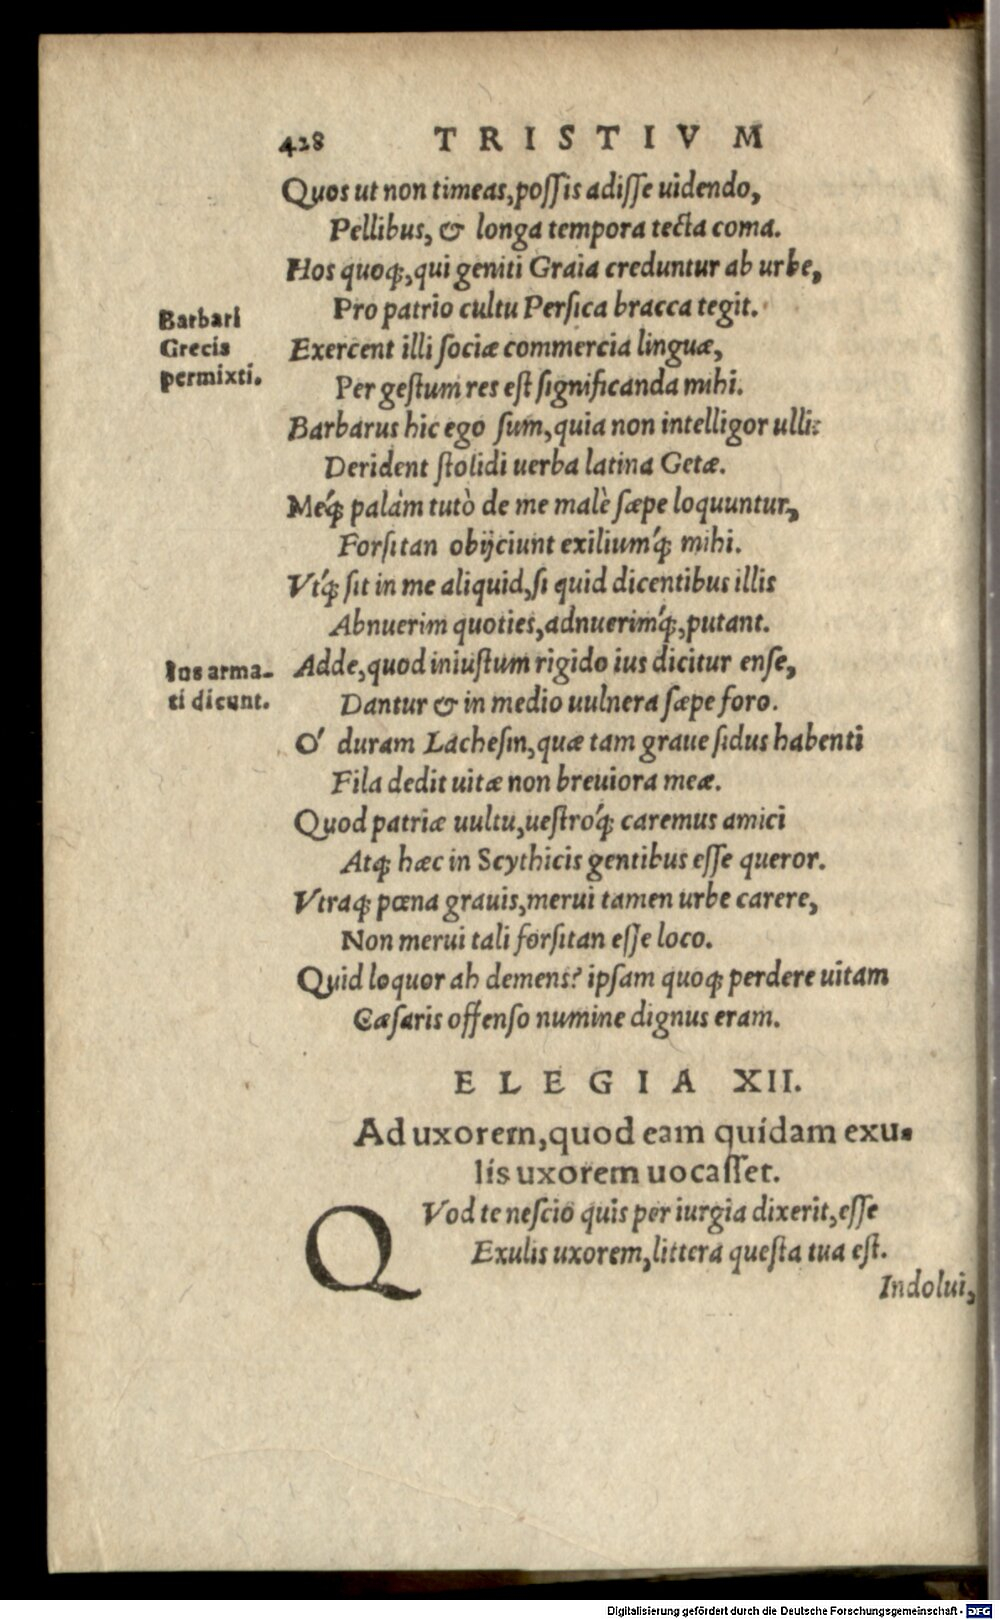 428 TRISTIVM
Quos ut non timeas, poſſis adiſſe uidendo,
Pellibus, & longa tempora tecta coma.
Hos quoq;, qui geniti Graia creduntur ab urbe,
Pro patrio cultu Perſica bracca tegit.
Barbari
Grecis
permixti.
Exercent illi ſociæ commercia linguæ,
Per geſtum res eſt ſignificanda mihi.
Barbarus hic ego ſum, quia non intelligor ulli:
Derident ſtolidi uerba latina Getæ.
Meq́; palàm tutò de me malè ſæpe loquuntur,
Forſitan obijciunt exiliumq́; mihi.
Vtq́; ſit in me aliquid, ſi quid dicentibus illis
Abnuerim quoties, adnuerimq́;, putant.
Ius arma-
ti dicunt.
Adde, quod iniuſtum rigido ius dicitur enſe,
Dantur & in medio uulnera ſæpe foro.
O' duram Lacheſin, quæ tam graue ſidus habenti
Fila dedit uitæ non breuiora meæ.
Quod patriæ uultu, ueſtroq́; caremus amici
Atq; hæc in Scythicis gentibus eſſe queror.
Vtraq; pœna grauis, merui tamen urbe carere,
Non merui tali forſitan eſſe loco.
Quid loquor ah demens? ipſam quoq; perdere uitam
Cæſaris offenſo numine dignus eram.
ELEGIA XII.
Ad uxorem, quod eam quidam exu-
lis uxorem uocaſſet.
QVod te neſcio quis per iurgia dixerit, eſſe
Exulis uxorem, littera queſta tua eſt.
Indolui,
Digitalisierung gefördert durch die Deutsche Forschungsgemeinschaft - DFG